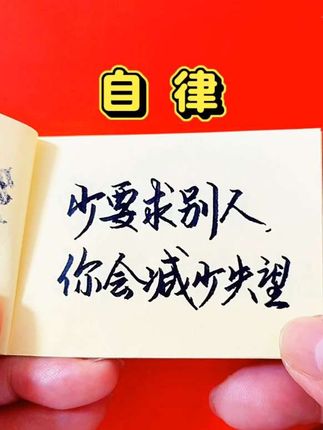 自律
少要求别人,
你会减少失望